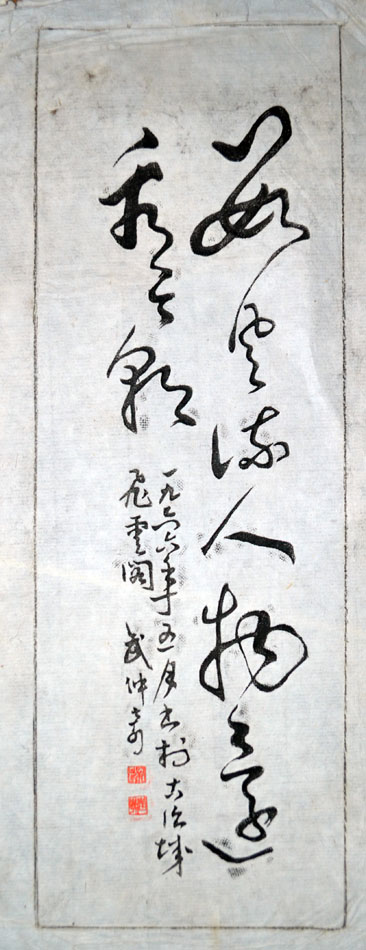 数风流人物还
看今朝
一九六六年五月书于古治城
飞云阁 武仲奇